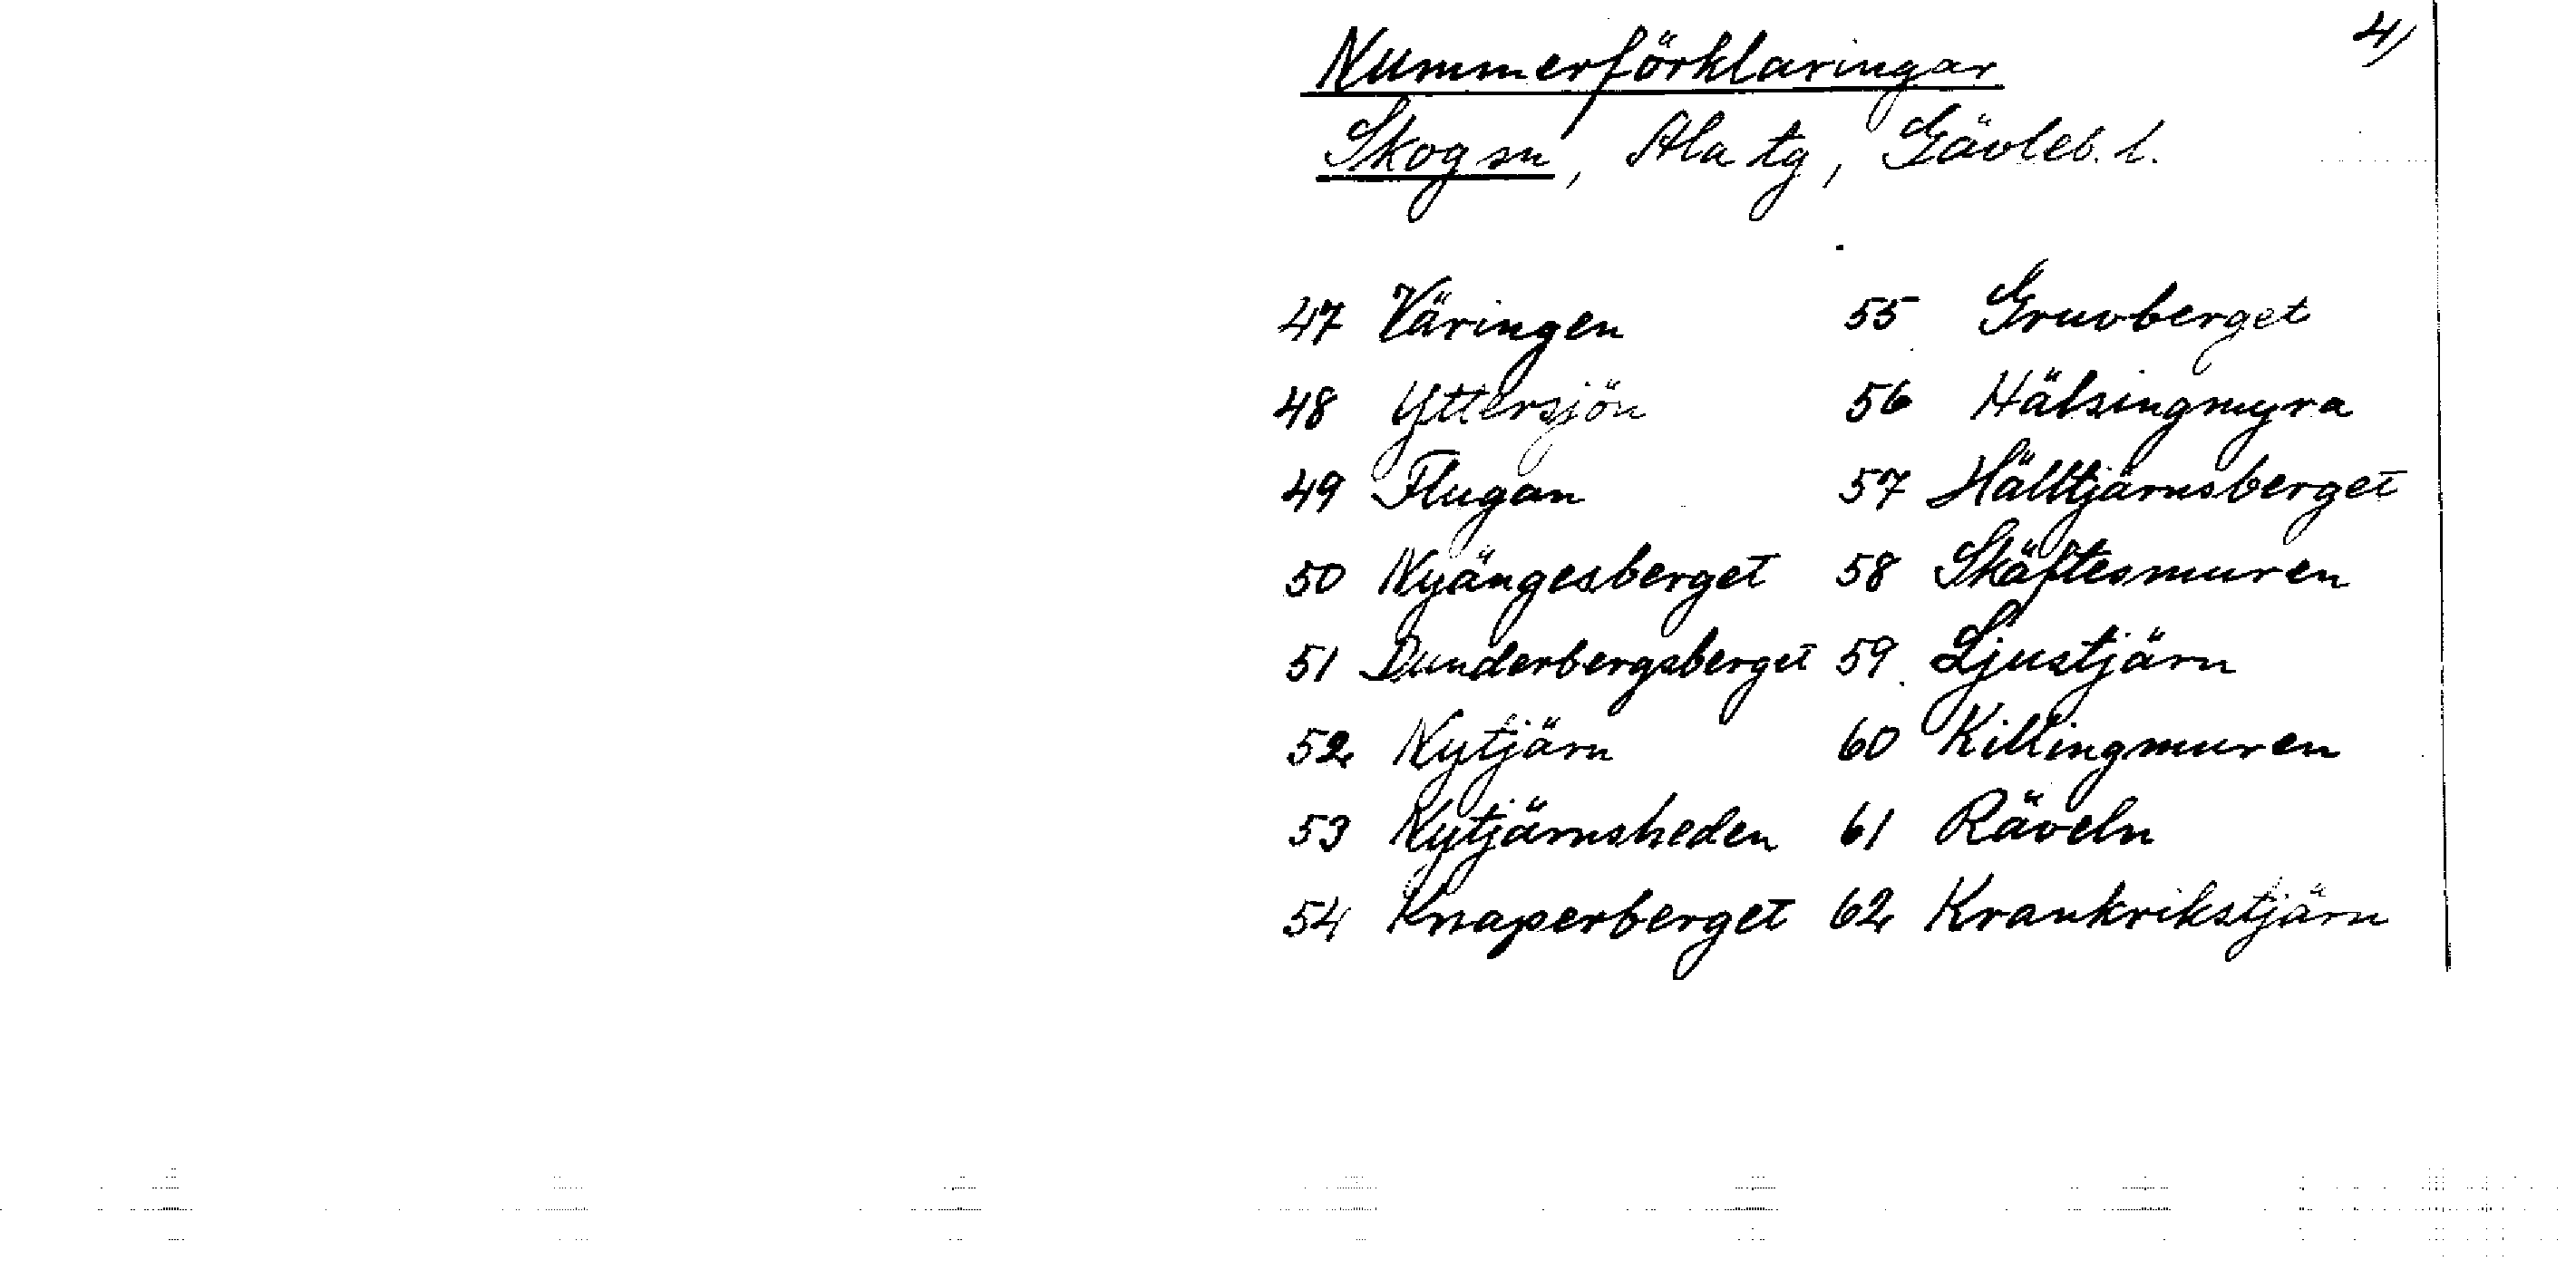 4)
Nummerförklaringar
Skog sn, Ala tg, Gävleb. l.
47 Väringen
48 Yttersjön
49 Flugan
50 Nyängesberget
51 Dunderbergsberget
52 Nytjärn
53 Nytjärnsheden
54 Knaperberget
55 Gruvberget
56 Hälsingmyra
57 Hälltjärnsberget
58 Skäftesmuren
59 Ljustjärn
60 Killingmuren
61 Räveln
62 Krankrikstjärn